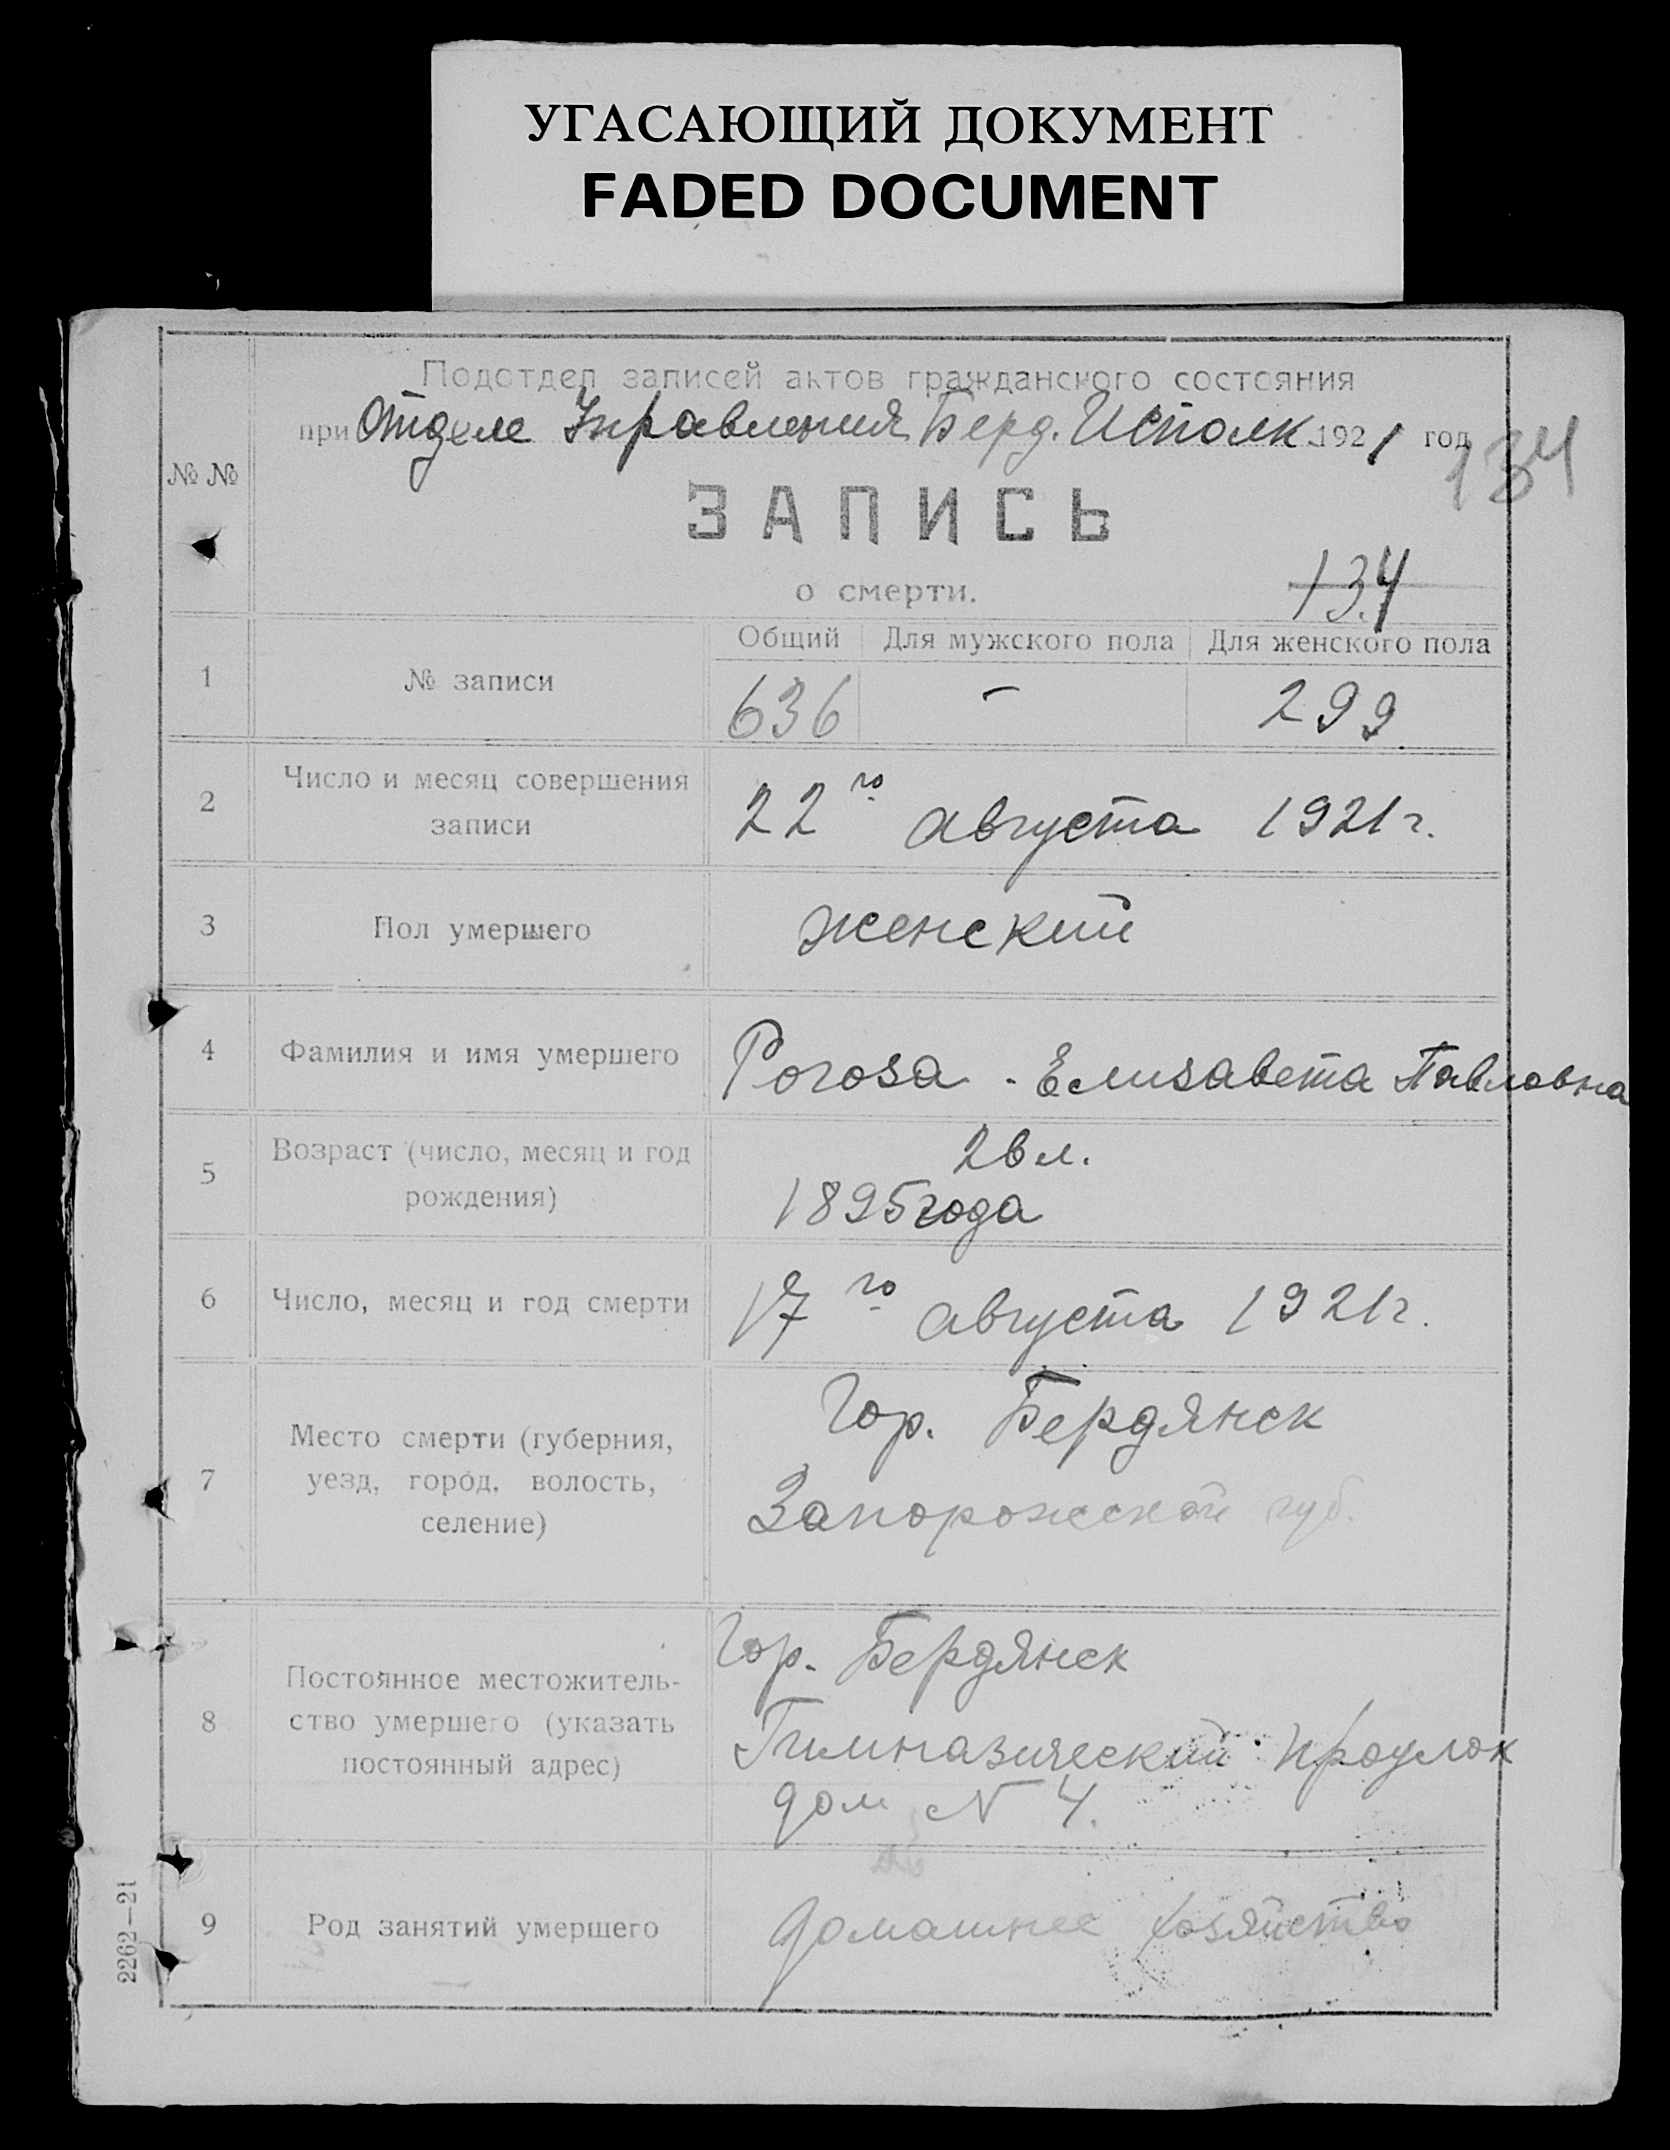 УГАСАЮЩИЙ ДОКУМЕНТ
FADED DOCUMENT
Подотдел записей актов гражданского состояния
при Отделе Управления Берд. Исполк. 1921 год
134
№ №
ЗАПИСЬ
о смерти.
134
Общий Для мужского пола Для женского пола
1 № записи 636 - 299
2 Число и месяц совершения
записи
22го августа 1921 г.
3 Пол умершего женский
4 Фамилия и имя умершего Рогоза - Елизавета Павловна
5 Возраст (число, месяц и год
рождения)
26 л.
1895 года
6 Число, месяц и год смерти 17го августа 1921 г.
7 Место смерти (губерния,
уезд, город, волость,
селение)
Гор. Бердянск
Запорожской губ.
8 Постоянное местожитель-
ство умершего (указать
постоянный адрес)
Гор. Бердянск
Гимназический проулок
дом № 4.
9 Род занятий умершего домашнее хозяйство
2262—21